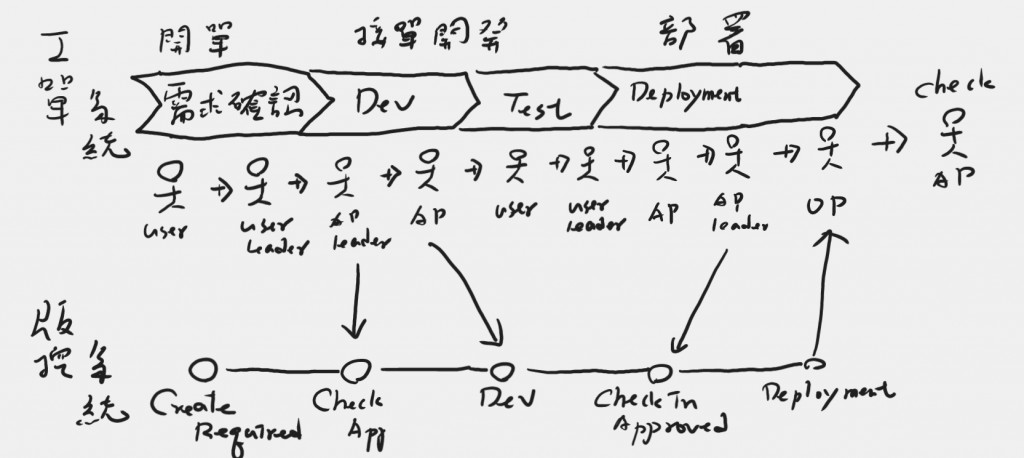 工單系統
開單
接單開發
部署
需求確認
Dev
Test
Deployment
check
AP
user
user
leader
AP
leader
AP
user
user
leader
AP
AP
leader
OP
版控系統
Create
Required
Check
App
Dev
CheckIn
Approved
Deployment